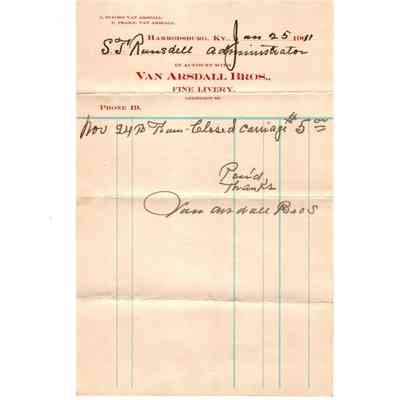 HARRODSBURG, KY., Jan 25 1911
S T Ransdell administrator
IN ACCOUNT WITH
VAN ARSDALL BROS.,
FINE LIVERY.
PHONE 19.
Nov 24 Closed carriage $ 5 00
Paid,
Thanks
Van arsdall Bros